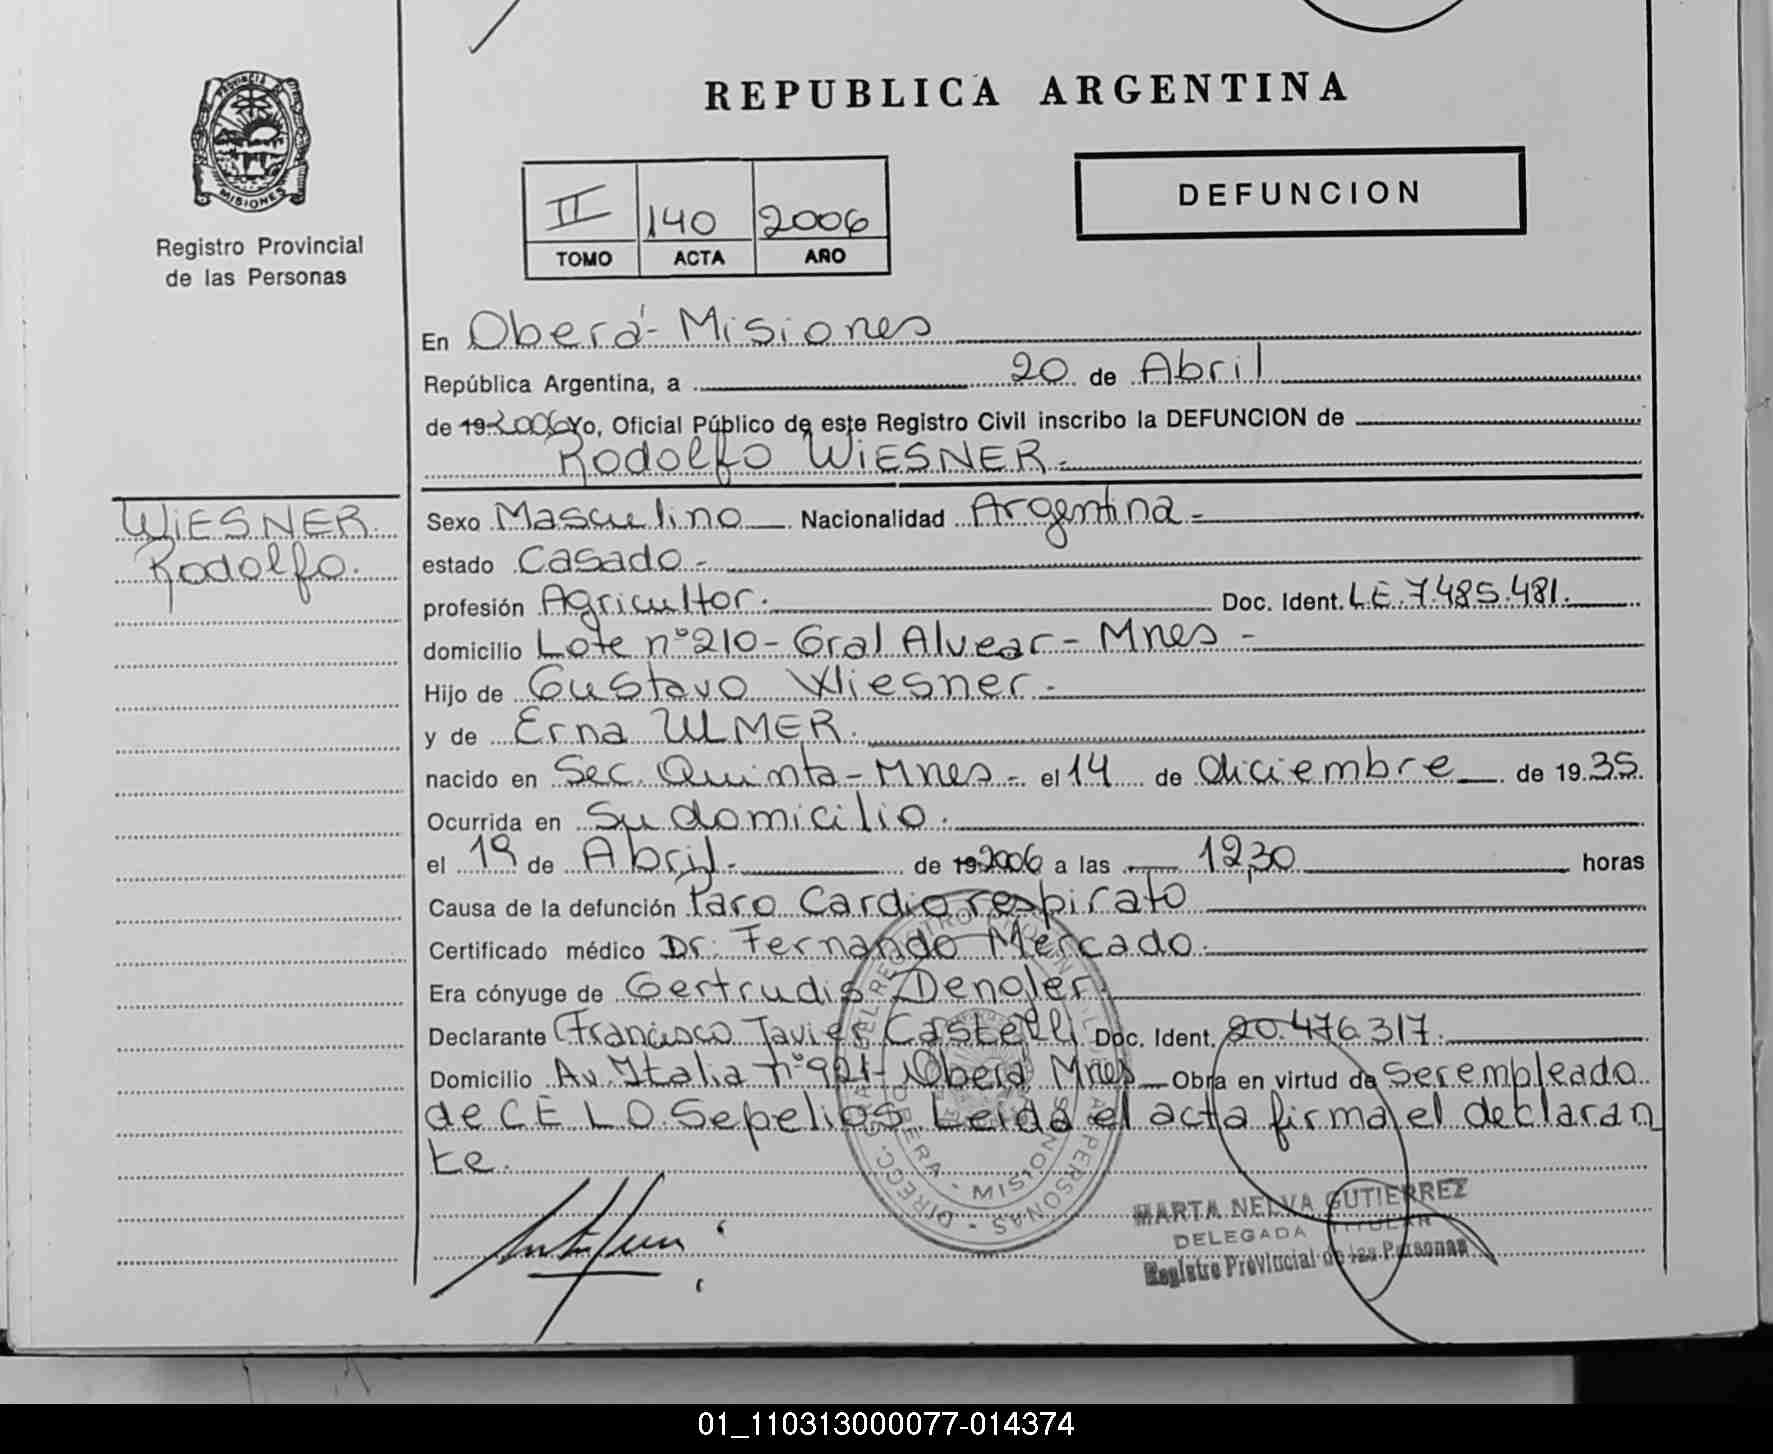 REPUBLICA ARGENTINA
PROVINCIA DE MISIONES
Registro Provincial
de las Personas
DEFUNCION
II 140 2006
TOMO ACTA AÑO
En Oberá - Misiones
República Argentina, a 20 de Abril
de 19 2006 Yo, Oficial Público de este Registro Civil inscribo la DEFUNCION de
Rodolfo WiESNER.-
WiESNER.
Rodolfo.
Sexo Masculino Nacionalidad Argentina -
estado Casado -
profesión Agricultor. Doc. Ident. L.E. 7.485.481.
domicilio Lote nº 210 - Gral Alvear - Mnes -
Hijo de Gustavo Wiesner.-
y de Erna ULMER.
nacido en Sec. Quinta - Mnes - el 14 de diciembre de 19 35.
Ocurrida en Su domicilio.
el 19 de Abril. de 19 2006 a las 12,30 horas
Causa de la defunción Paro Cardio respirato
Certificado médico Dr: Fernando Mercado.
Era cónyuge de Gertrudis Dengler.
Declarante Francisco Javier Castelli Doc. Ident. 20.476.317.
Domicilio Av. Italia nº 921 - Oberá Mnes Obra en virtud de Ser empleado
de C.E.L.O. Sepelios. Leida el acta firma el declaran
te.
MARTA NELVA GUTIERREZ
DELEGADA TITULAR
Registro Provincial de las Personas
01_110313000077-014374